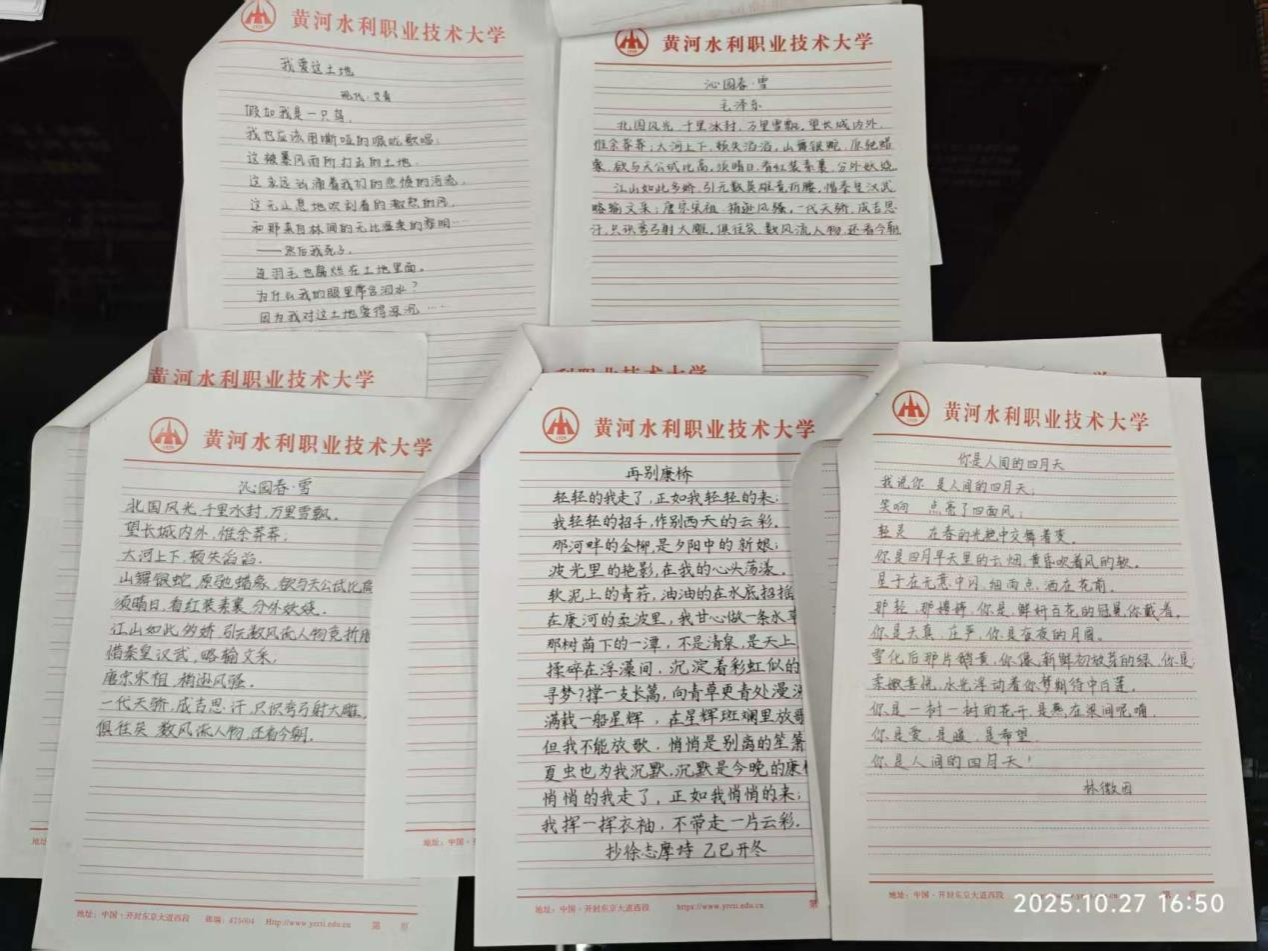 黄河水利职业技术大学
我爱这土地
现代·艾青
假如我是一只鸟,
我也应该用嘶哑的喉咙歌唱:
这被暴风雨所打击的土地.
这永远汹涌着我们的悲愤的河流,
这无止息地吹刮着的激怒的风,
和那来自林间的无比温柔的黎明……
——然后我死了,
连羽毛也腐烂在土地里面。
为什么我的眼里常含泪水?
因为我对这土地爱得深沉……
黄河水利职业技术大学
沁园春·雪
毛泽东
北国风光,千里冰封,万里雪飘。望长城内外,
惟余莽莽;大河上下,顿失滔滔,山舞银蛇,原驰蜡
象,欲与天公试比高,须晴日,看红装素裹,分外妖娆
江山如此多娇,引无数英雄竞折腰,惜秦皇汉武
略输文采;唐宗宋祖 稍逊风骚,一代天骄,成吉思
汗,只识弯弓射大雕,俱往矣,数风流人物,还看今朝
黄河水利职业技术大学
黄河水利职业技术大学
沁园春·雪
北国风光,千里冰封,万里雪飘.
望长城内外,惟余莽莽;
大河上下,顿失滔滔.
山舞银蛇,原驰蜡象,欲与天公试比高
须晴日,看红装素裹,分外妖娆.
江山如此多娇,引无数英雄竞折腰
惜秦皇汉武,略输文采,
唐宗宋祖,稍逊风骚.
一代天骄,成吉思汗,只识弯弓射大雕,
俱往矣 数风流人物,还看今朝.
地址:中国·开封东京大道西段 邮编:475004 Http://www.yrcti.edu.cn 第 页
利职业技术大学
黄河水利职业技术大学
再别康桥
轻轻的我走了,正如我轻轻的来;
我轻轻的招手,作别西天的云彩.
那河畔的金柳,是夕阳中的新娘;
波光里的艳影,在我的心头荡漾.
软泥上的青荇,油油的在水底招摇
在康河的柔波里,我甘心做一条水草
那树荫下的一潭,不是清泉,是天上
揉碎在浮藻间,沉淀着彩虹似的
寻梦?撑一支长篙,向青草更青处漫溯
满载一船星辉,在星辉斑斓里放歌
但我不能放歌,悄悄是别离的笙箫
夏虫也为我沉默,沉默是今晚的康桥
悄悄的我走了,正如我悄悄的来;
我挥一挥衣袖,不带走一片云彩.
抄徐志摩诗 乙巳开冬
地址:中国·开封东京大道西段 https://www.yrcti.edu.cn 第
黄河水利职业技术大学
你是人间的四月天
我说你 是人间的四月天;
笑响 点亮了四面风;
轻灵 在春的光艳中交舞着变.
你是四月早天里的云烟,黄昏吹着风的软,
星子在无意中闪,细雨点 洒在花前.
那轻,那娉婷,你是,鲜妍百花的冠冕你戴着,
你是天真,庄严,你是夜夜的月圆。
雪化后那片鹅黄,你像,新鲜初放芽的绿,你是
柔嫩喜悦,水光浮动着你梦期待中白莲.
你是一树一树的花开,是燕在梁间呢喃,
你是爱,是暖,是希望
你是人间的四月天!
林徽因
地址:中国·开封东京大道西段
2025.10.27 16:50